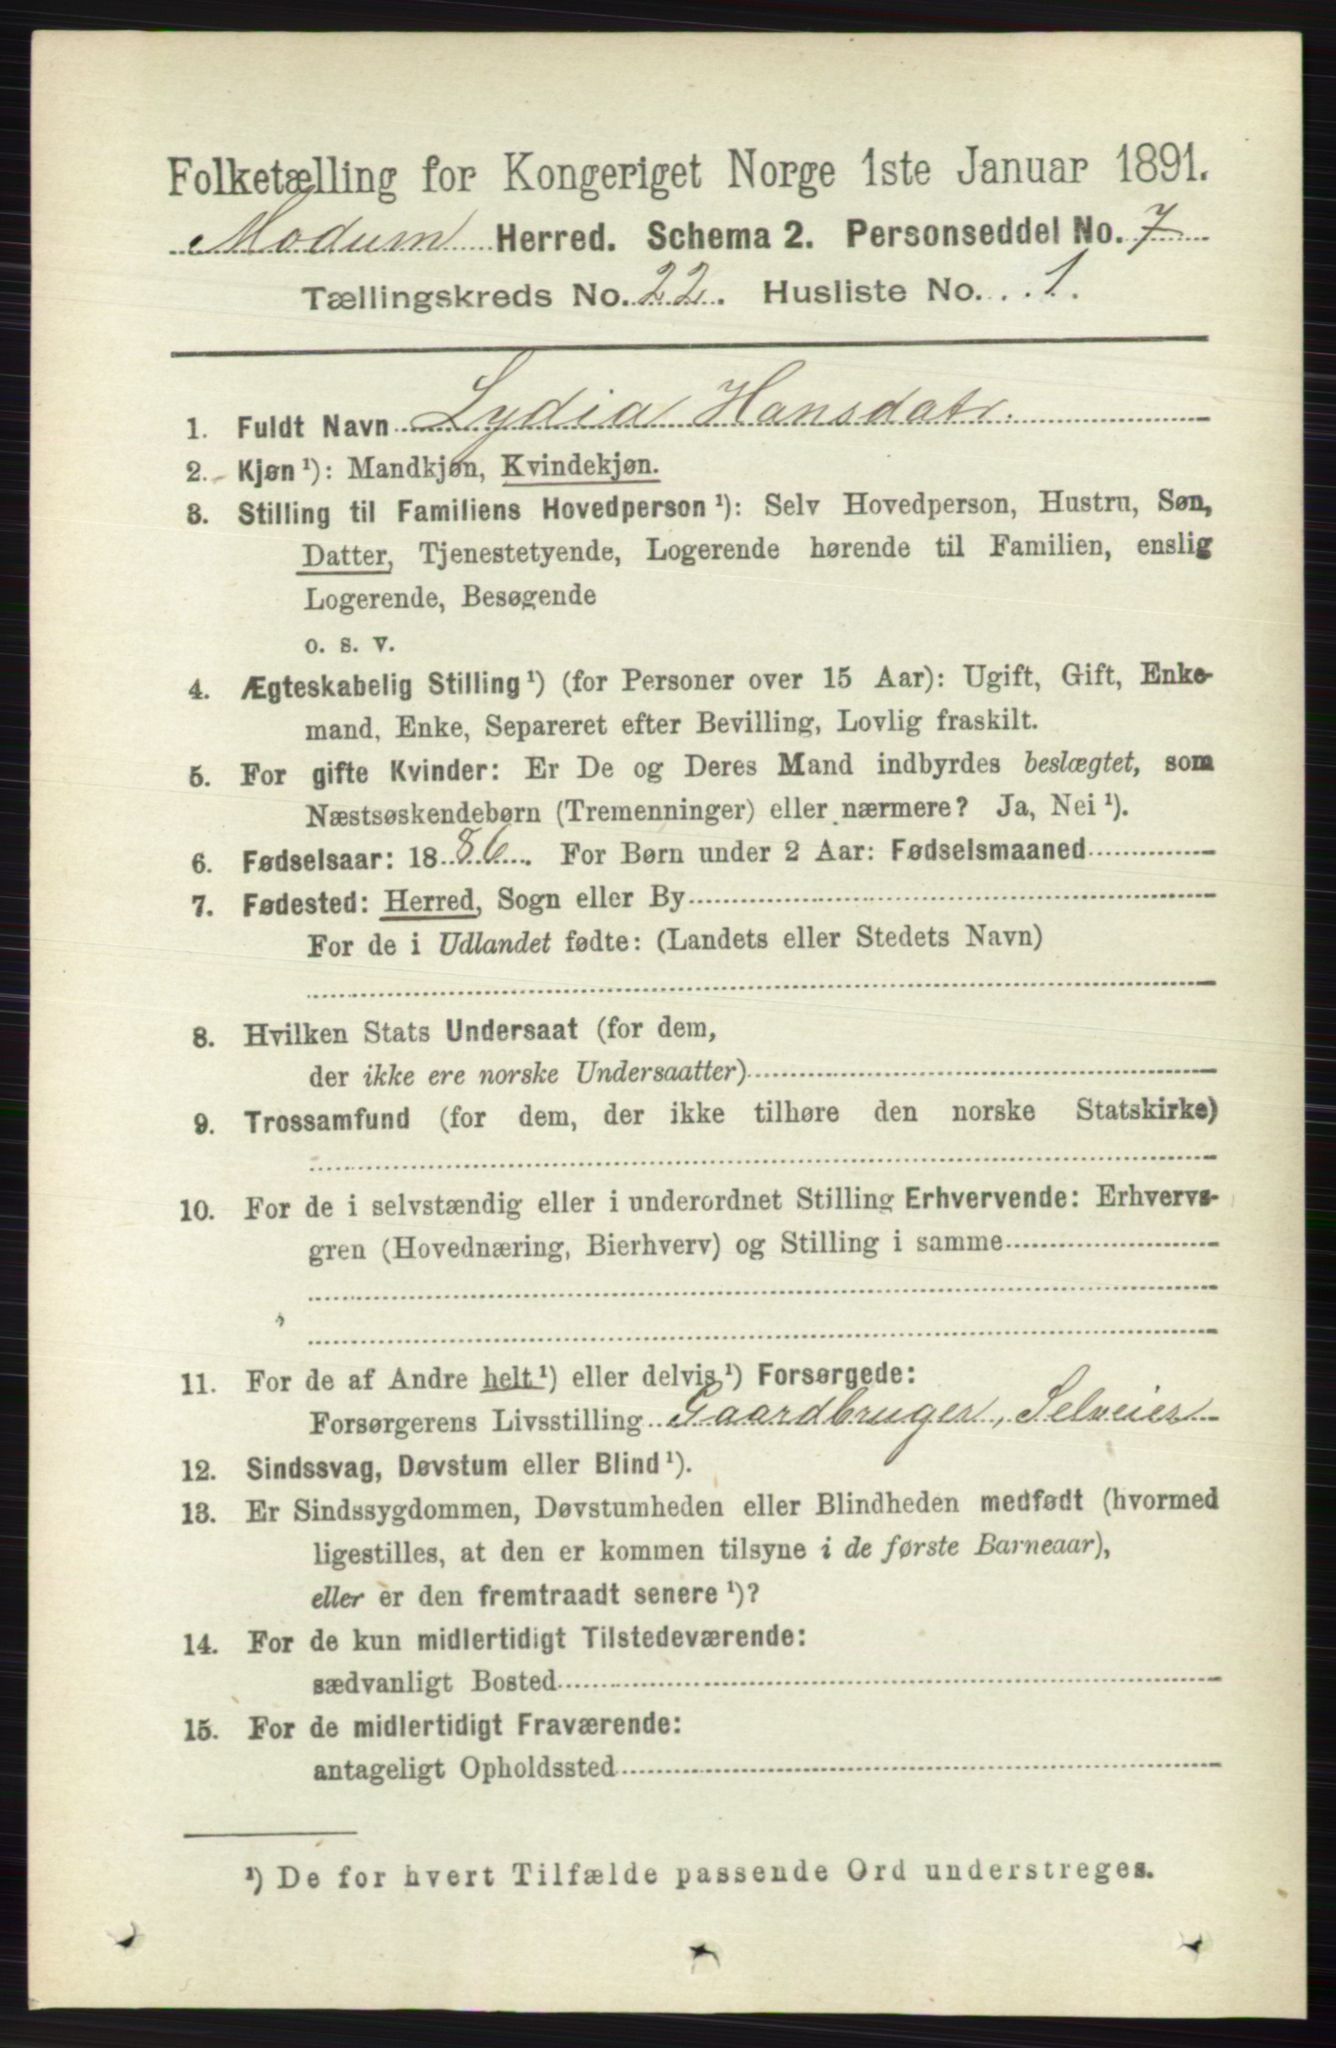 Folketælling for Kongeriget Norge 1ste Januar 1891.
Modum Herred. Schema 2. Personseddel No. 7
Tællingskreds No. 22. Husliste No. 1.
1. Fuldt Navn Lydia Hansdatr.
2. Kjøn ¹): Mandkjøn, Kvindekjøn.
3. Stilling til Familiens Hovedperson ¹): Selv Hovedperson, Hustru, Søn,
Datter, Tjenestetyende, Logerende hørende til Familien, enslig
Logerende, Besøgende
o. s. v.
4. Ægteskabelig Stilling ¹) (for Personer over 15 Aar): Ugift, Gift, Enke-
mand, Enke, Separeret efter Bevilling, Lovlig fraskilt.
5. For gifte Kvinder: Er De og Deres Mand indbyrdes beslægtet, som
Næstsøskendebørn (Tremenninger) eller nærmere? Ja, Nei ¹).
6. Fødselsaar: 1886. For Børn under 2 Aar: Fødselsmaaned
7. Fødested: Herred, Sogn eller By
For de i Udlandet fødte: (Landets eller Stedets Navn)
8. Hvilken Stats Undersaat (for dem,
der ikke ere norske Undersaatter)
9. Trossamfund (for dem, der ikke tilhøre den norske Statskirke)
10. For de i selvstændig eller i underordnet Stilling Erhvervende: Erhvervs-
gren (Hovednæring, Bierhverv) og Stilling i samme
11. For de af Andre helt ¹) eller delvis ¹) Forsørgede:
Forsørgerens Livsstilling Gaardbruger, Selveier
12. Sindssvag, Døvstum eller Blind ¹).
13. Er Sindssygdommen, Døvstumheden eller Blindheden medfødt (hvormed
ligestilles, at den er kommen tilsyne i de første Barneaar),
eller er den fremtraadt senere ¹)?
14. For de kun midlertidigt Tilstedeværende:
sædvanligt Bosted
15. For de midlertidigt Fraværende:
antageligt Opholdssted
¹) De for hvert Tilfælde passende Ord understreges.